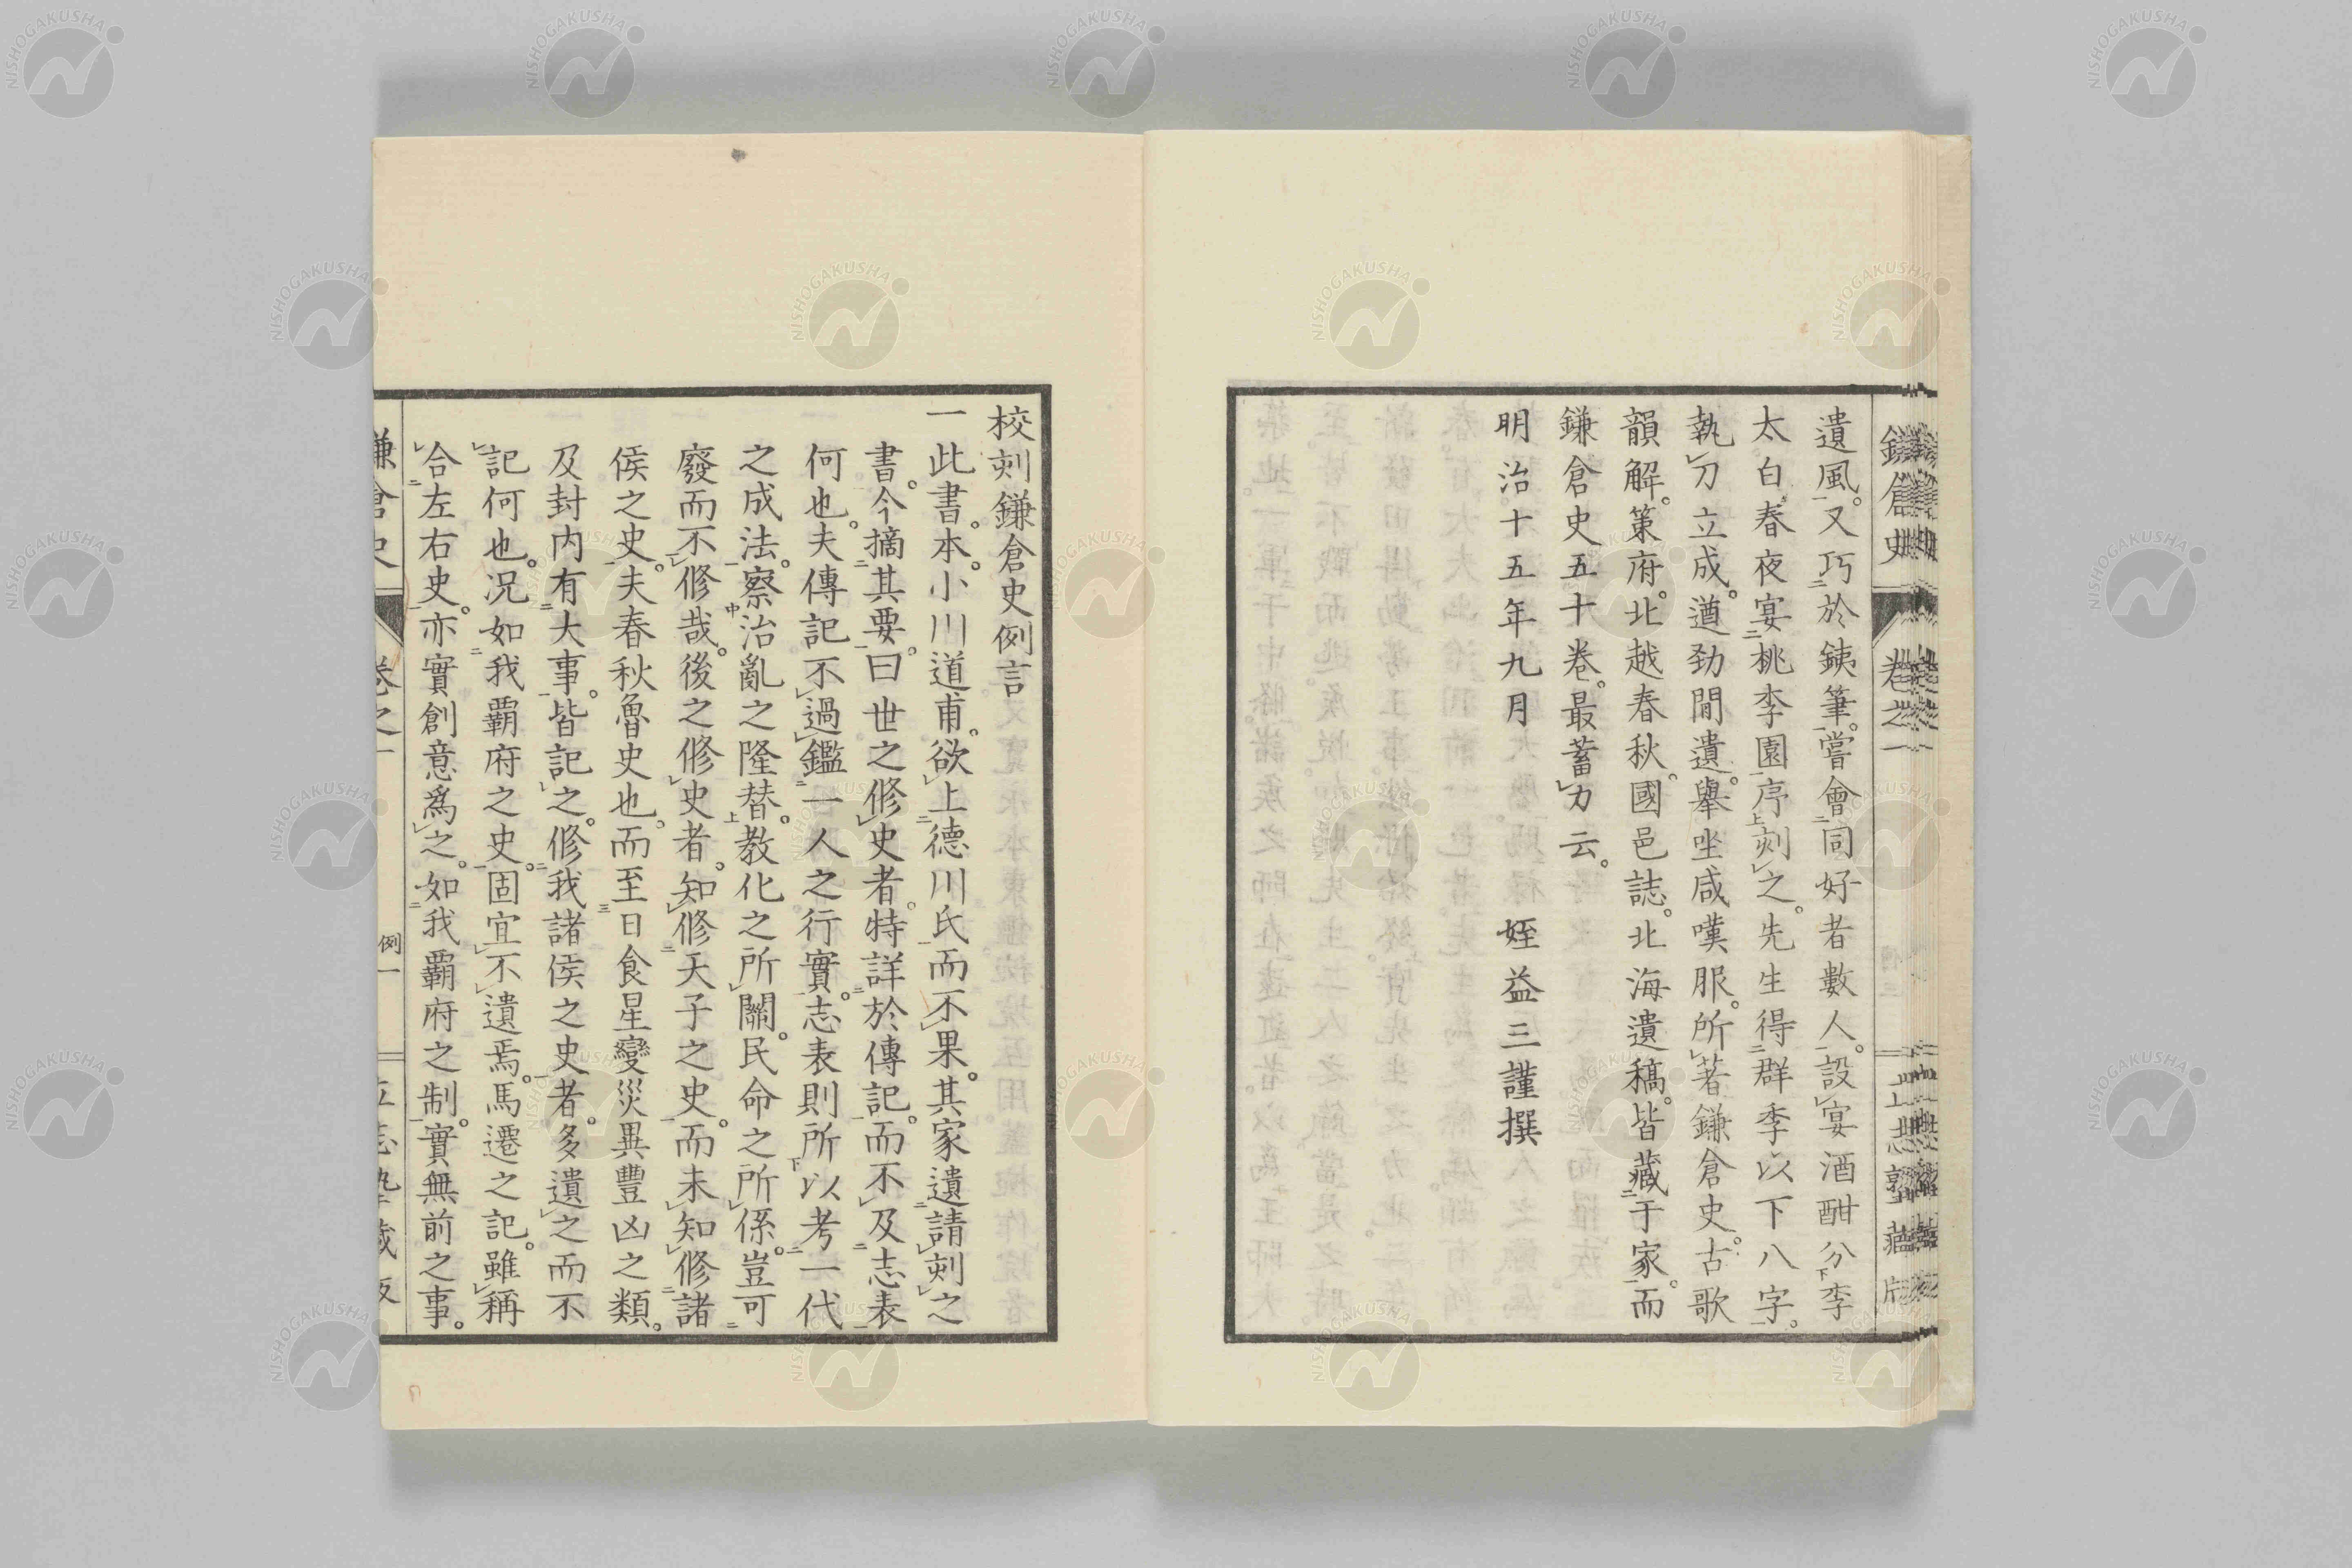 遺風。又巧於銕筆。嘗會同好者數人。設宴酒酣分李
太白春夜宴桃李園序刻之。先生得群季以下八字。
執刀立成。遒勁閒遺。舉坐咸嘆服。所著鎌倉史。古歌
韻解。策府。北越春秋。國邑誌。北海遺稿。皆藏于家。而
鎌倉史五十卷。最蓄力云。
明治十五年九月 姪益三謹撰
校刻鎌倉史例言
一此書。本小川道甫。欲上德川氏而不果。其家遺請刻之
書。今摘其要。曰世之修史者。特詳於傳記。而不及志表
何也。夫傳記不過鑑一人之行實。志表則所以考一代
之成法。察治亂之隆替。教化之所關。民命之所係。豈可
廢而不修哉。後之修史者。知修天子之史。而未知修諸
侯之史。夫春秋魯史也。而至日食星變災異豐凶之類。
及封内有大事。皆記之。修我諸侯之史者。多遺之而不
記何也。況如我覇府之史。固宜不遺焉。馬遷之記。雖稱
合左右史。亦實創意爲之。如我覇府之制。實無前之事。
鎌倉史 卷之一 例一
NISHOGAKUSHA